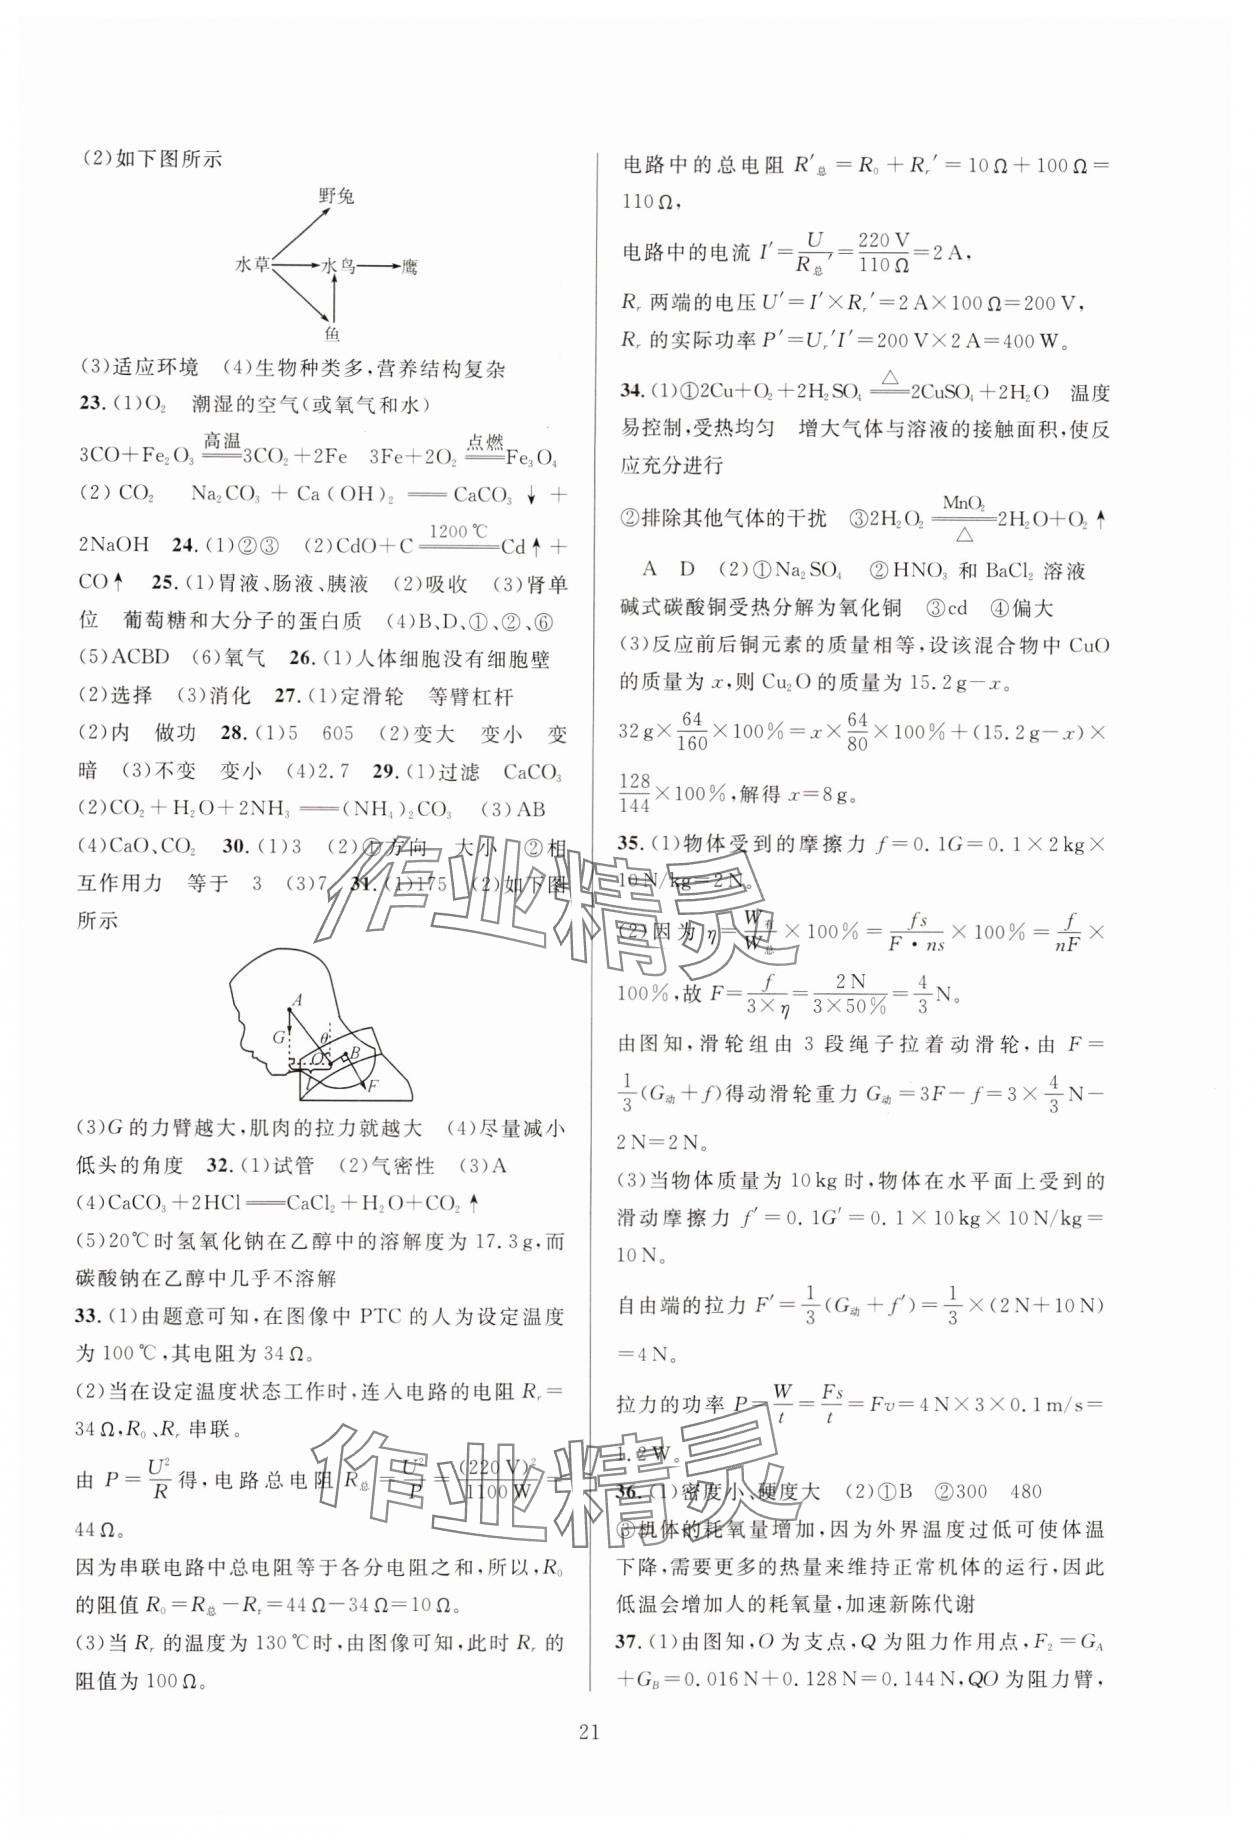 (2)如下图所示
野兔
水草 水鸟 鹰
鱼
(3)适应环境 (4)生物种类多,营养结构复杂
23.(1)O₂ 潮湿的空气(或氧气和水)
3CO+Fe₂O₃ ==高温== 3CO₂+2Fe 3Fe+2O₂ ==点燃== Fe₃O₄
(2) CO₂ Na₂CO₃ + Ca(OH)₂ == CaCO₃↓ +
2NaOH 24.(1)②③ (2)CdO+C ==1200℃== Cd↑+
CO↑ 25.(1)胃液、肠液、胰液 (2)吸收 (3)肾单
位 葡萄糖和大分子的蛋白质 (4)B、D、①、②、⑥
(5)ACBD (6)氧气 26.(1)人体细胞没有细胞壁
(2)选择 (3)消化 27.(1)定滑轮 等臂杠杆
(2)内 做功 28.(1)5 605 (2)变大 变小 变
暗 (3)不变 变小 (4)2.7 29.(1)过滤 CaCO₃
(2)CO₂+H₂O+2NH₃ == (NH₄)₂CO₃ (3)AB
(4)CaO、CO₂ 30.(1)3 (2)①方向 大小 ②相
互作用力 等于 3 (3)7 31.(1)175 (2)如下图
所示
A
G θ
O B
l F
(3)G的力臂越大,肌肉的拉力就越大 (4)尽量减小
低头的角度 32.(1)试管 (2)气密性 (3)A
(4)CaCO₃+2HCl == CaCl₂+H₂O+CO₂↑
(5)20℃时氢氧化钠在乙醇中的溶解度为17.3g,而
碳酸钠在乙醇中几乎不溶解
33.(1)由题意可知,在图像中PTC的人为设定温度
为100℃,其电阻为34Ω。
(2)当在设定温度状态工作时,连入电路的电阻Rᵣ=
34Ω,R₀、Rᵣ串联。
由 P=U²/R 得,电路总电阻 R总=U²/P=(220V)²/1100W=
44Ω。
因为串联电路中总电阻等于各分电阻之和,所以,R₀
的阻值R₀=R总-Rᵣ=44Ω-34Ω=10Ω。
(3)当Rᵣ的温度为130℃时,由图像可知,此时Rᵣ的
阻值为100Ω。
电路中的总电阻R′总=R₀+Rᵣ′=10Ω+100Ω=
110Ω,
电路中的电流I′=U/R总′=220V/110Ω=2A,
Rᵣ两端的电压U′=I′×Rᵣ′=2A×100Ω=200V,
Rᵣ的实际功率P′=Uᵣ′I′=200V×2A=400W。
34.(1)①2Cu+O₂+2H₂SO₄ ==△== 2CuSO₄+2H₂O 温度
易控制,受热均匀 增大气体与溶液的接触面积,使反
应充分进行
②排除其他气体的干扰 ③2H₂O₂ ==MnO₂/△== 2H₂O+O₂↑
A D (2)①Na₂SO₄ ②HNO₃和BaCl₂溶液
碱式碳酸铜受热分解为氧化铜 ③cd ④偏大
(3)反应前后铜元素的质量相等,设该混合物中CuO
的质量为x,则Cu₂O的质量为15.2g-x。
32g×64/160×100%=x×64/80×100%+(15.2g-x)×
128/144×100%,解得x=8g。
35.(1)物体受到的摩擦力 f=0.1G=0.1×2kg×
10N/kg=2N。
(2)因为η=W有/W总×100%=fs/F·ns×100%=f/nF×
100%,故F=f/3×η=2N/3×50%=4/3N。
由图知,滑轮组由3段绳子拉着动滑轮,由F=
1/3(G动+f)得动滑轮重力G动=3F-f=3×4/3N-
2N=2N。
(3)当物体质量为10kg时,物体在水平面上受到的
滑动摩擦力f′=0.1G′=0.1×10kg×10N/kg=
10N。
自由端的拉力F′=1/3(G动+f′)=1/3×(2N+10N)
=4N。
拉力的功率P=W/t=Fs/t=Fv=4N×3×0.1m/s=
1.2W。
36.(1)密度小、硬度大 (2)①B ②300 480
③机体的耗氧量增加,因为外界温度过低可使体温
下降,需要更多的热量来维持正常机体的运行,因此
低温会增加人的耗氧量,加速新陈代谢
37.(1)由图知,O为支点,Q为阻力作用点,F₂=G_A
+G_B=0.016N+0.128N=0.144N,QO为阻力臂,
21
作业精灵
作业精灵